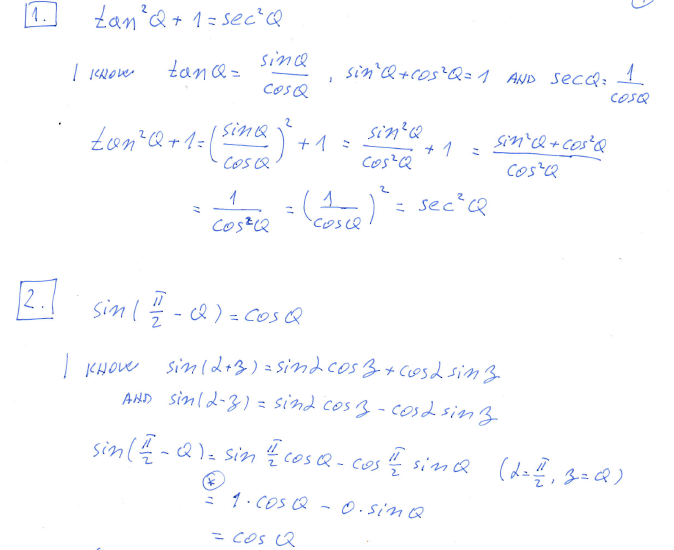 1. tan²Q + 1 = sec²Q
I KNOW tanQ = sinQ/cosQ , sin²Q + cos²Q = 1 AND secQ = 1/cosQ
tan²Q + 1 = (sinQ/cosQ)² + 1 = sin²Q/cos²Q + 1 = (sin²Q + cos²Q)/cos²Q
= 1/cos²Q = (1/cosQ)² = sec²Q
2. sin(π/2 - Q) = cosQ
I KNOW sin(α+β) = sinα cosβ + cosα sinβ
AND sin(α-β) = sinα cosβ - cosα sinβ
sin(π/2 - Q) = sin π/2 cosQ - cos π/2 sinQ (α = π/2, β = Q)
(*)
= 1 · cosQ - 0 · sinQ
= cosQ